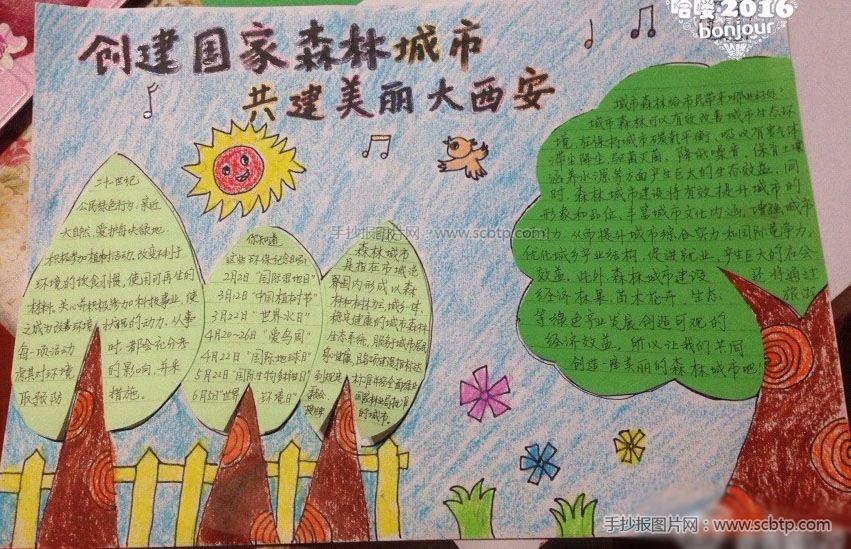 哈喽2016
bonjour
创建国家森林城市
共建美丽大西安
二十世纪
公民绿色行为:亲近
大自然,爱护每块绿地.
积极参加植树活动,改变不利于
环境的饮食习惯,使用可再生的
材料,关心并积极参加科技事业,使
之成为改善环境 的动力,从事
每一项活动 时,都会充分考
虑其对环境 的影响,并采
取预防 措施.
你知道
这些环保纪念日吗?
2月2日"国际湿地日"
3月12日"中国植树节"
3月22日"世界水日"
4月20~26日"爱鸟周"
4月22日"国际地球日"
5月22日"国际生物多样性日"
6月5日"世界 环境日"
森林城市
是指在市域边
界国内形成以森
林和树木为
稳定健康的城市森林
生态系统,服务城市居民
的城市。
城市森林给市民带来哪些好处?
城市森林可以有效改善城市生态环
境,在保持城市碳氧平衡、吸收有害气体
滞尘降尘、驱菌灭菌、降低噪音、保育土壤
涵养水源等方面产生巨大的生态效益,同
时,森林城市建设将有效提升城市的
形象和品位,丰富城市文化内涵,增强城市
力,从而提升城市综合实力和国际竞争力,
优化城乡产业结构,促进就业,产生巨大的社会
效益,此外,森林城市建设 还将通过
经济林果、苗木花卉、生态 旅游
等绿色产业发展创造可观的
经济效益,所以让我们共同
创造一座美丽的森林城市吧!
手抄报图片网:www.scbtp.com
手抄报图片网:www.scbtp.com